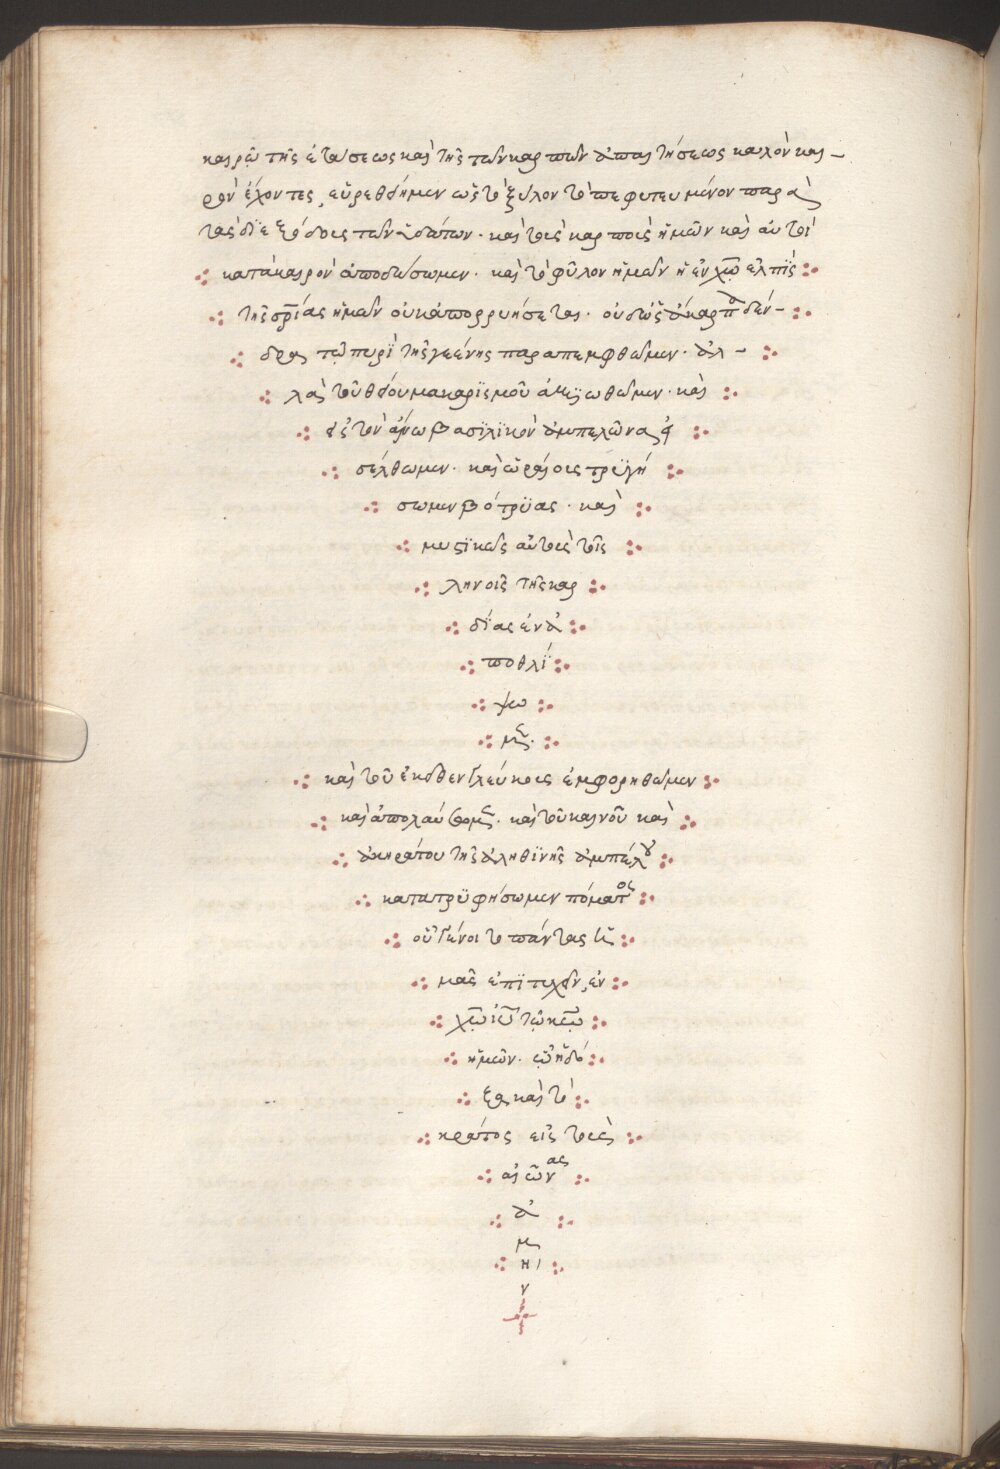 καιρῷ τῆς ἐτάσεως καὶ τῆς τῶν καρπῶν ἀπαιτήσεως καλὸν και-
ρὸν ἔχοντες, εὑρεθῶμεν ὡς τὸ ξύλον τὸ πεφυτευμένον παρὰ
τὰς διεξόδους τῶν ὑδάτων. καὶ τοὺς καρποὺς ἡμῶν καὶ αὐτοὶ
κατὰ καιρὸν ἀποδώσωμεν. καὶ τὸ φῦλον ἡμῶν ἡ ἐν χω ἐλπὶς
τῆς σριας ἡμῶν οὐκ ἀπορρυήσεται. οὐδ ὡς ἄκαρπα δέν-
δρα τῷ πυρὶ τῆς γεέννης παραπεμφθῶμεν. ἀλ-
λὰ τοῦ θείου μακαρισμοῦ ἀξιωθῶμεν. καὶ
εἰς τὸν ἄνω βασιλικὸν ἀμπελῶνα εἰ
σέλθωμεν. καὶ ὡραίους τρυγή
σωμεν βότρυας. καὶ
μυστικῶς αὐτοὺς τοῖς
ληνοῖς τῆς καρ
δίας ἐνα
ποθλί
ψω
μεν.
καὶ τοῦ ἐκεῖθεν γλεύκους ἐμφορηθῶμεν
καὶ ἀπολαύσομεν. καὶ τοῦ καινοῦ καὶ
ἀκηράτου τῆς ἀληθινῆς ἀμπέλου
κατατρυφήσωμεν πόματος
οὗ γένοιτο πάντας ὑ
μᾶς ἐπιτυχεῖν, ἐν
χω ιυ τῷ κω
ἡμῶν. ᾧ ἡ δό
ξα καὶ τὸ
κράτος εἰς τοὺς
αἰῶνας
ἀ
μ
ή
ν